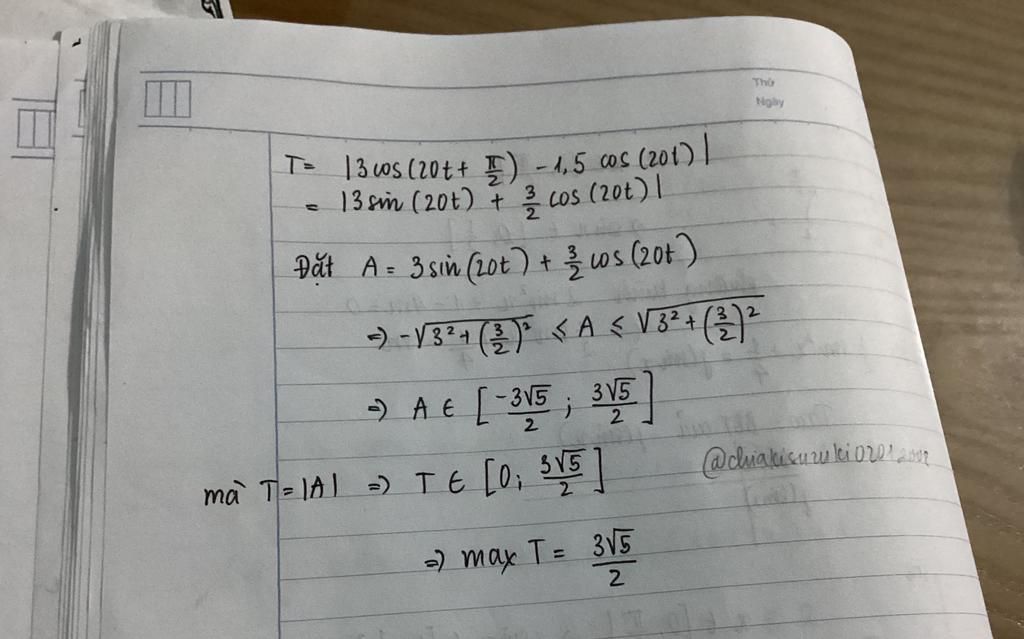 Thứ
Ngày
T = |3 cos(20t + π/2) - 1,5 cos(20t)|
= |3 sin(20t) + 3/2 cos(20t)|
Đặt A = 3 sin(20t) + 3/2 cos(20t)
⇒ -√(3² + (3/2)²) ≤ A ≤ √(3² + (3/2)²)
⇒ A ∈ [-3√5/2 ; 3√5/2]
mà T = |A| ⇒ T ∈ [0; 3√5/2]
⇒ max T = 3√5/2